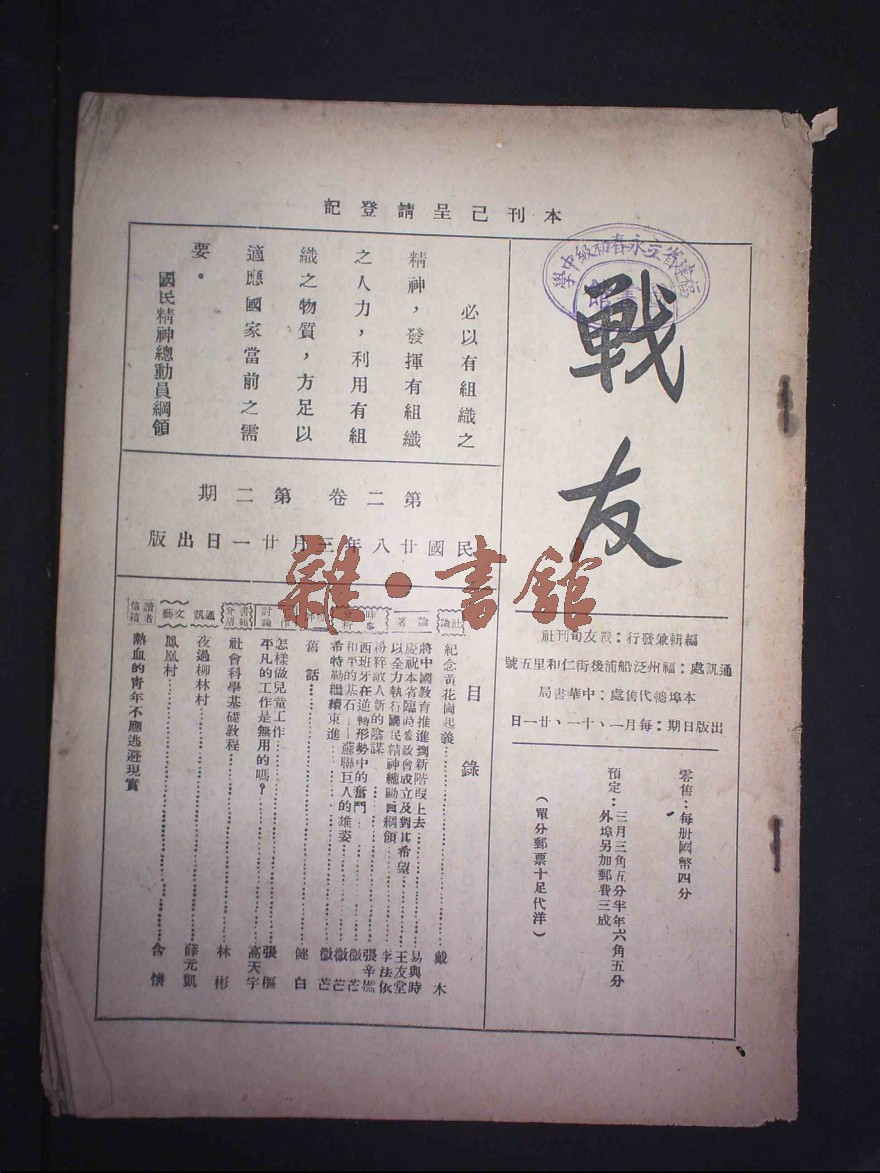 本刊已呈請登記
福建省立永春初級中學
戰友
編輯兼發行：戰友旬刊社
通訊處：福州泛船浦後街仁和里五號
本埠總代售處：中華書局
出版日期：每月一、十一、廿一日
零售：每册國幣四分
預定：三月三角五分半年六角五分
外埠另加郵費三成
（單分郵票十足代洋）
必以有組織之
精神，發揮有組織
之人力，利用有組
織之物質，方足以
適應國家當前之需
要。
國民精神總動員綱領
第二卷 第二期
民國廿八年三月廿一日出版
目錄
社論
紀念黃花崗起義……戴木
論著
將中國教育推進到新階段上去……易與時
慶祝本省臨時參政會成立及對其希望……王友堂
以全力執行國民精神總動員綱領……李法依
時事分析
粉粹敵人新的陰謀……張辛
西班牙在逆轉形勢中的奮鬥……微芒
和平的基石——蘇聯巨人的雄姿……微芒
希特勒繼續東進……微芒
舊話……健白
工作討論
怎樣做兒童工作……張樞
平凡的工作是無用的嗎？……高天宇
書報介紹
社會科學基礎教程……林彬
通訊
夜過柳林村……薛元凱
文藝
鳳凰村……含懷
讀者信箱
熱血的青年不應逃避現實
雜·書館